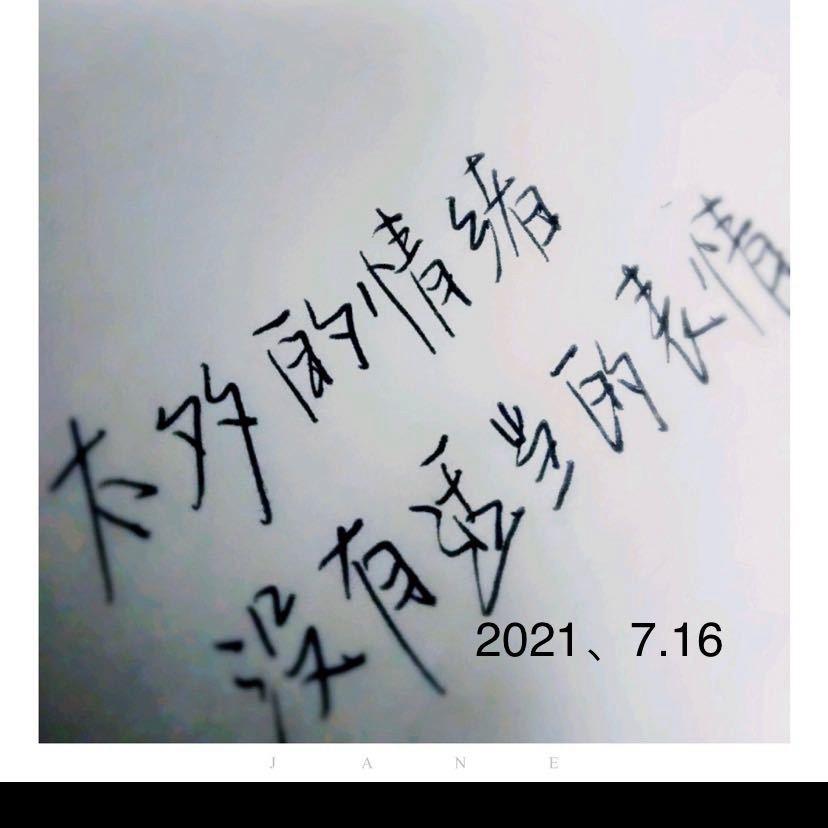 太多的情绪
没有适当的表情
2021、7.16
JANE